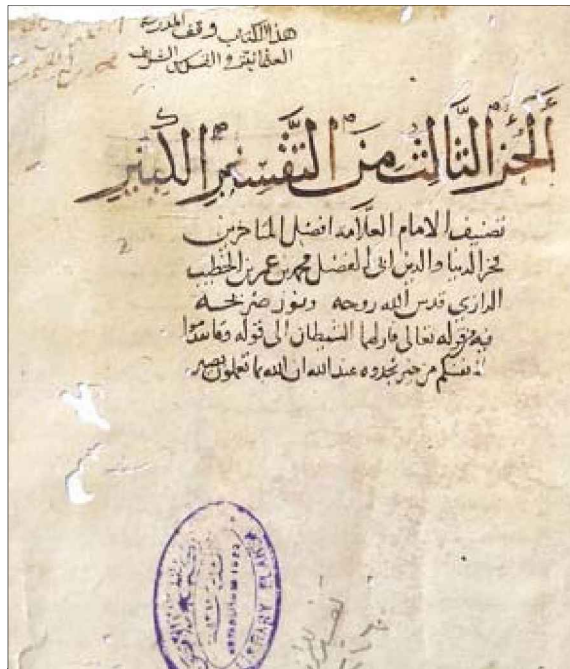 هذا الكتاب وقف المدرسة
العثمانية والنسل الشريف
الجزء الثالث من التفسير الكبير
تصنيف الامام العلامه افضل المتاخرين
فخر الدنيا والدين ابى الفضل محمد بن عمر بن الخطيب
الرازي قدس الله روحه ونور ضريحه
فيه من قوله تعالى فازلهما الشيطان الى قوله وما تقدموا
لانفسكم من خير تجدوه عند الله ان الله بما تعملون بصير
LIBRARY